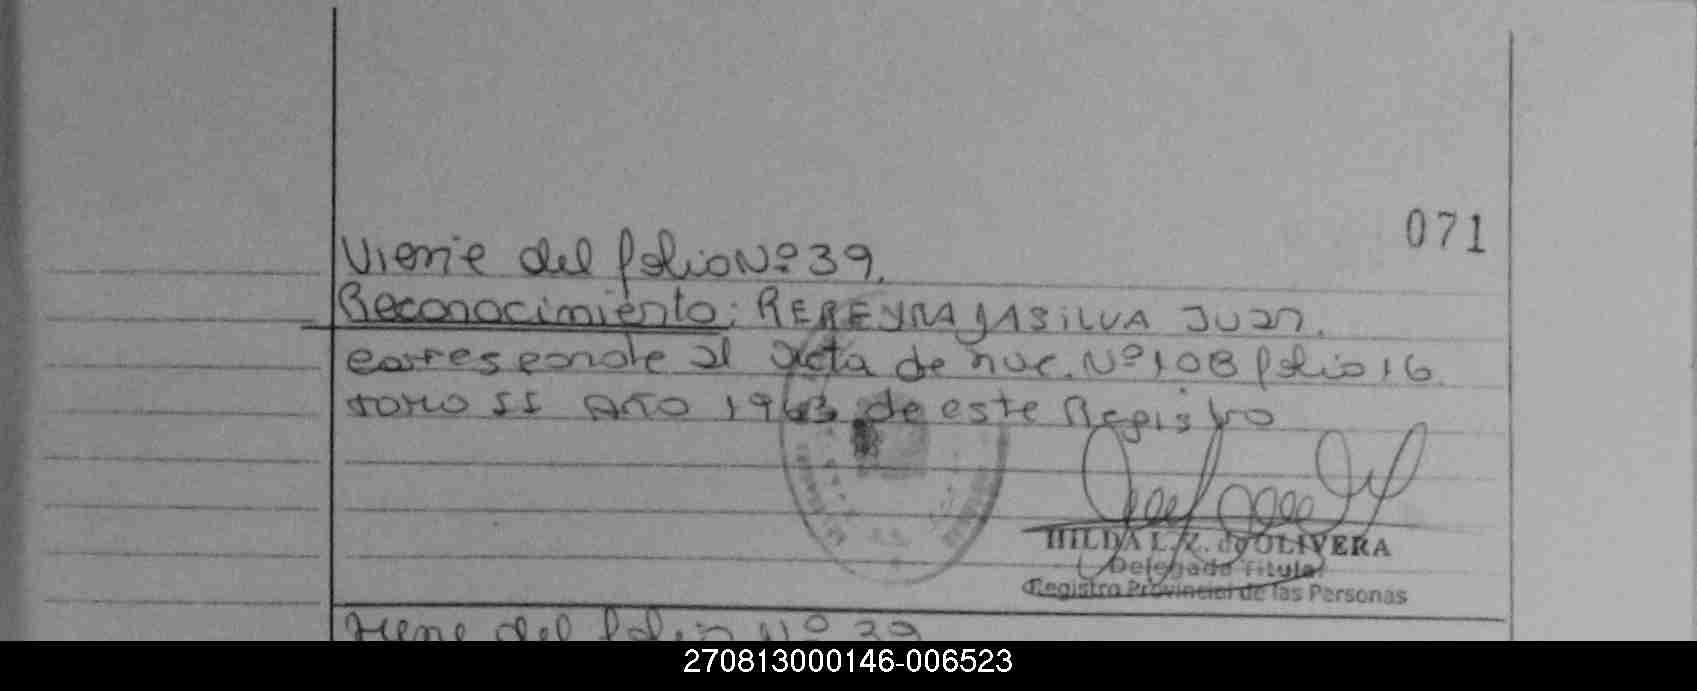 071
Viene del folio Nº 39.
Reconocimiento: PEREYRA DA SILVA JUAN.
corresponde al acta de nac. Nº 108 folio 16.
tomo II AÑO 1963 de este Registro
HILDA L. Z. de OLIVERA
Delegada Titular
Registro Provincial de las Personas
Viene del folio Nº 39
270813000146-006523